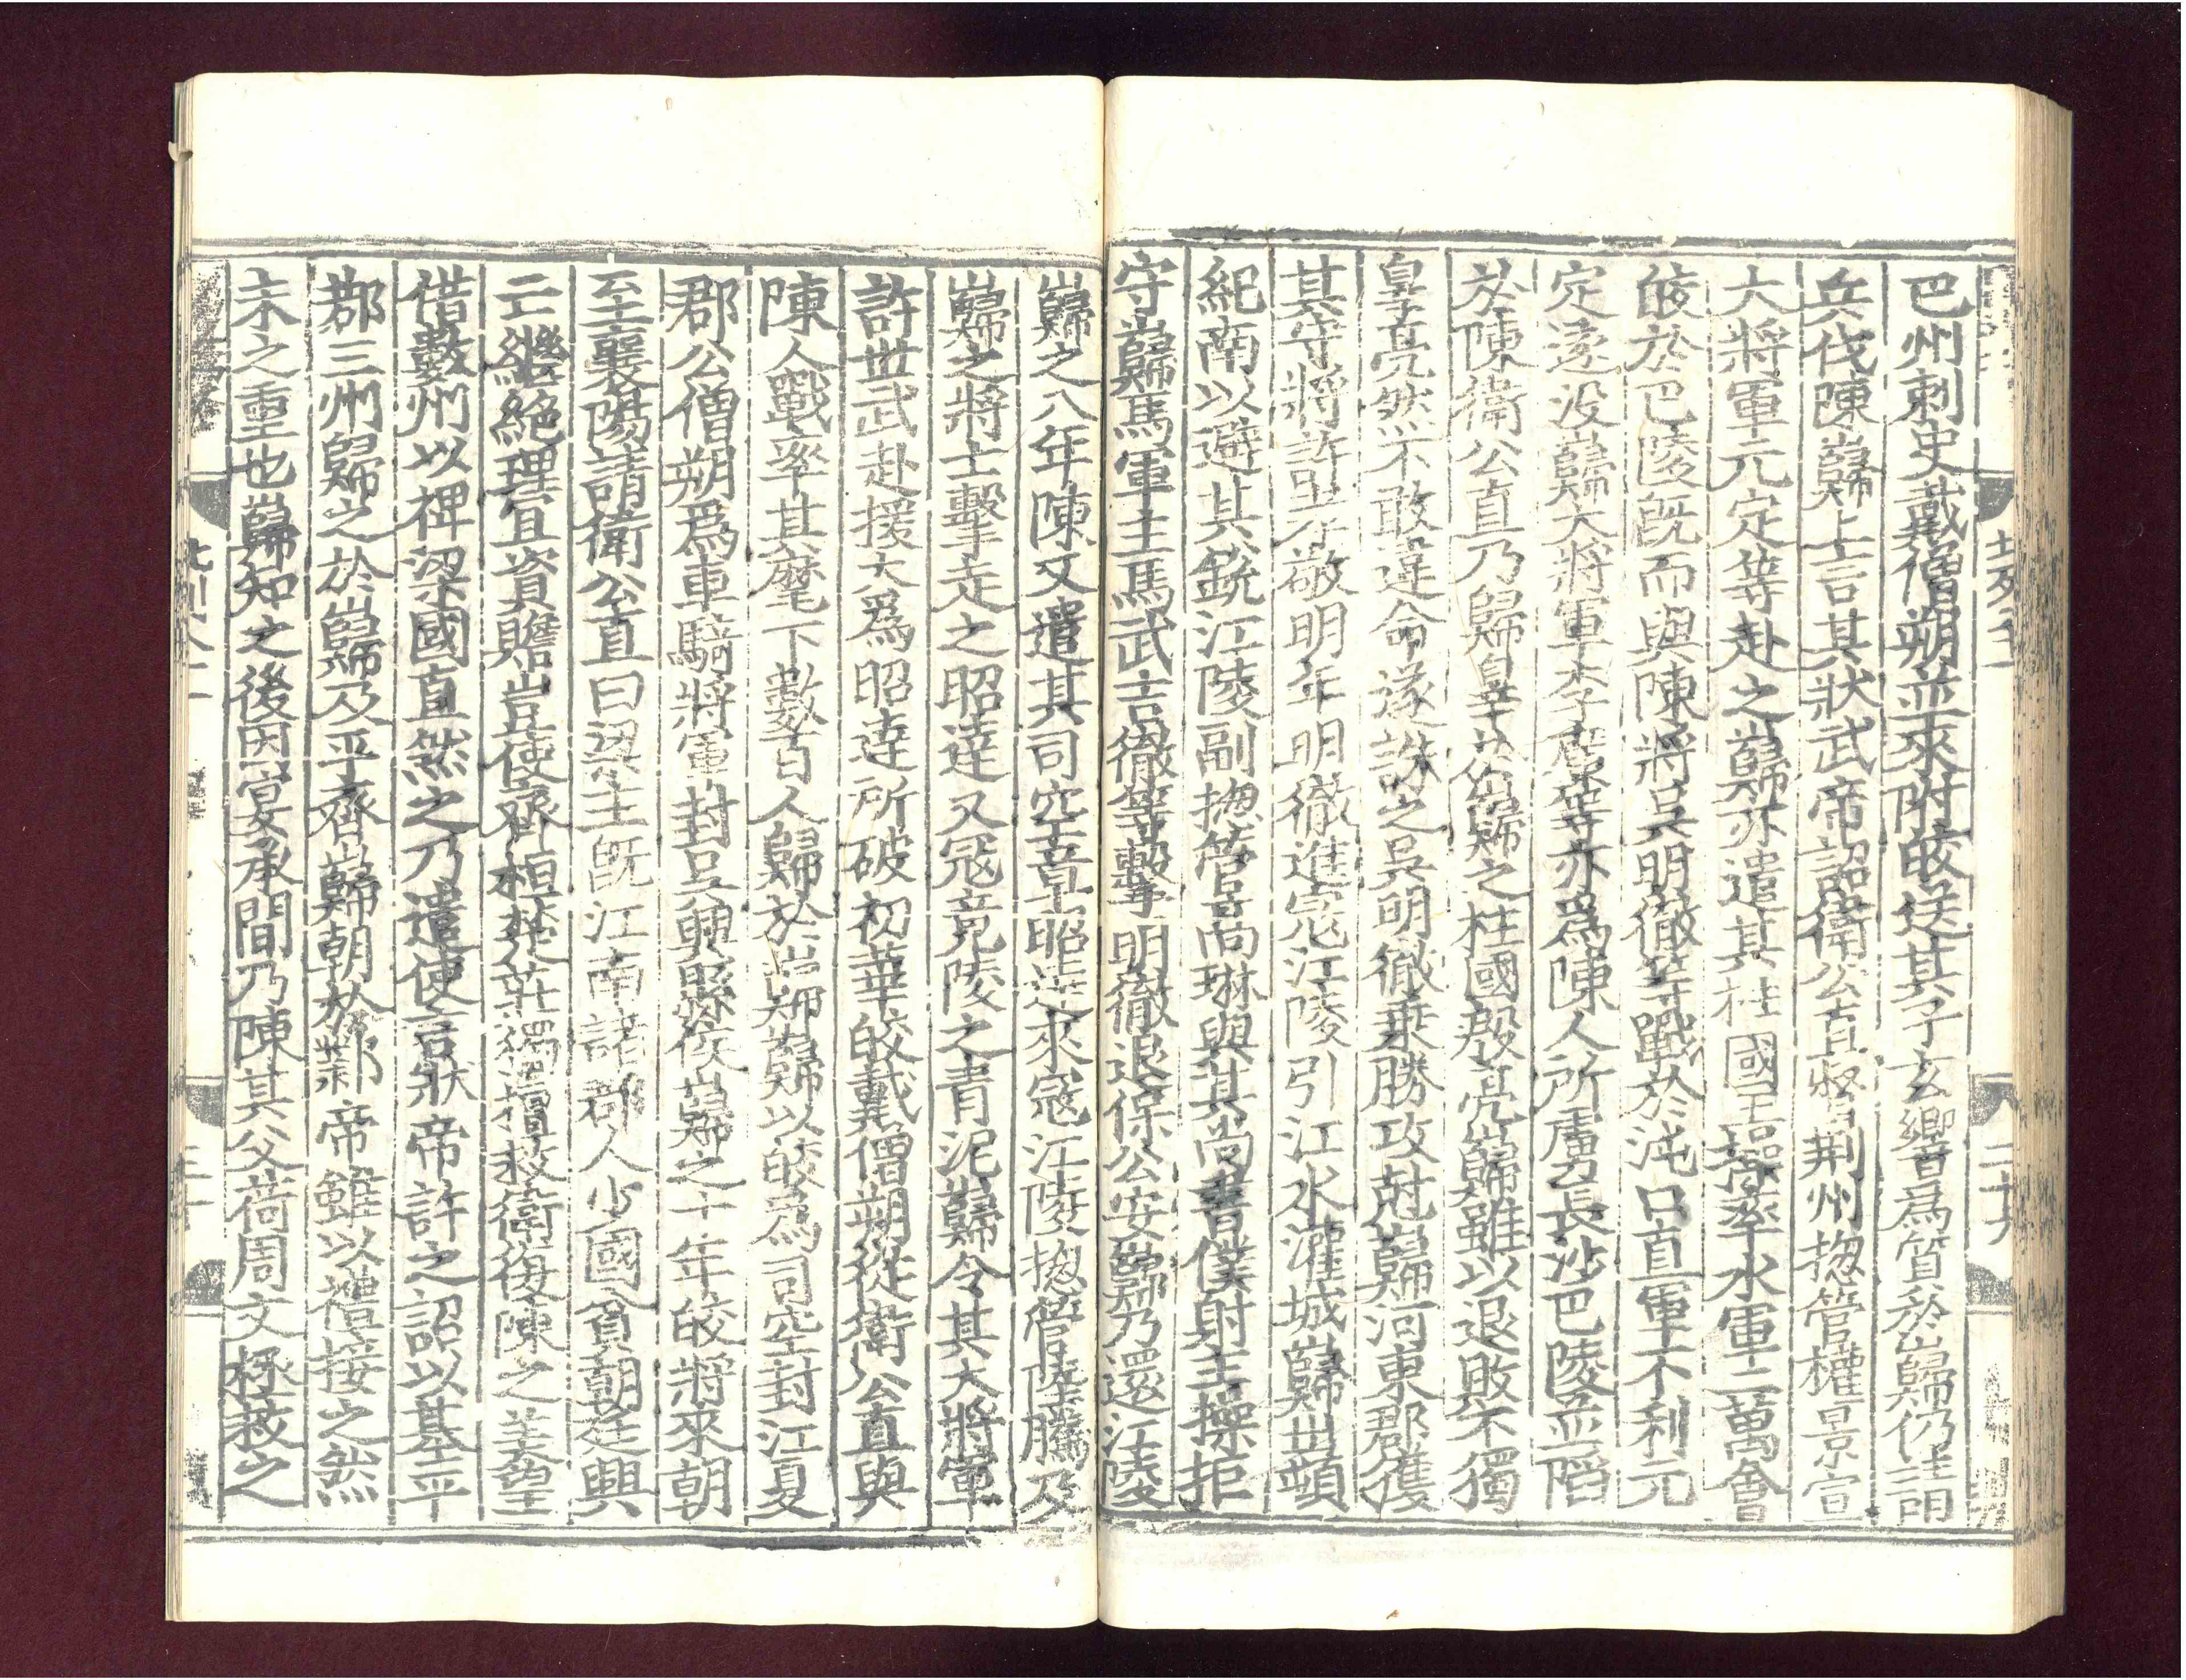 巴州刺史戴僧朔並來附皎送其子玄響爲質於巋仍請
兵伐陳巋上言其狀武帝詔衛公直督荆州揔管權景宣
大將軍元定等赴之巋亦遣其柱國王操率水軍二萬會
皎於巴陵旣而與陳將吳明徹等戰於沌口直軍不利元
定遂没巋大將軍李廣等亦爲陳人所虜長沙巴陵並䧟
於陳衛公直乃歸皋於巋之柱國殷亮巋雖以退敗不獨
皋亮然不敢違命遂誅之吳明徹乗勝攻尅巋河東郡獲
其守將許孝敬明年明徹進寇江陵引江水灌城巋出頓
紀南以避其銳江陵副揔管高琳與其尚書僕射王操拒
守巋馬軍主馬武吉徹等擊明徹退保公安巋乃還江陵
巋之八年陳又遣其司空章昭達來寇江陵揔管陸騰及
巋之將士擊走之昭達又寇竟陵之青泥巋令其大將軍
許世武赴援大爲昭逹所破初華皎戴僧朔從衛公直與
陳人戰率其麾下數百人歸於巋巋以皎爲司空封江夏
郡公僧朔爲車騎將軍封吳興縣侯巋之十年皎將來朝
至襄陽請衛公直曰梁主旣江南諸郡人少國貧朝廷興
亡繼絕理宜資贍豈使齊桓楚莊獨擅救衛復陳之美望
借數州以裨梁國直然之乃遣使言狀帝許之詔以基平
鄀三州歸之於巋及平齊巋朝於鄴帝雖以禮接之然
未之重也巋知之後因宴承間乃陳其父荷周文拯救之
二十九